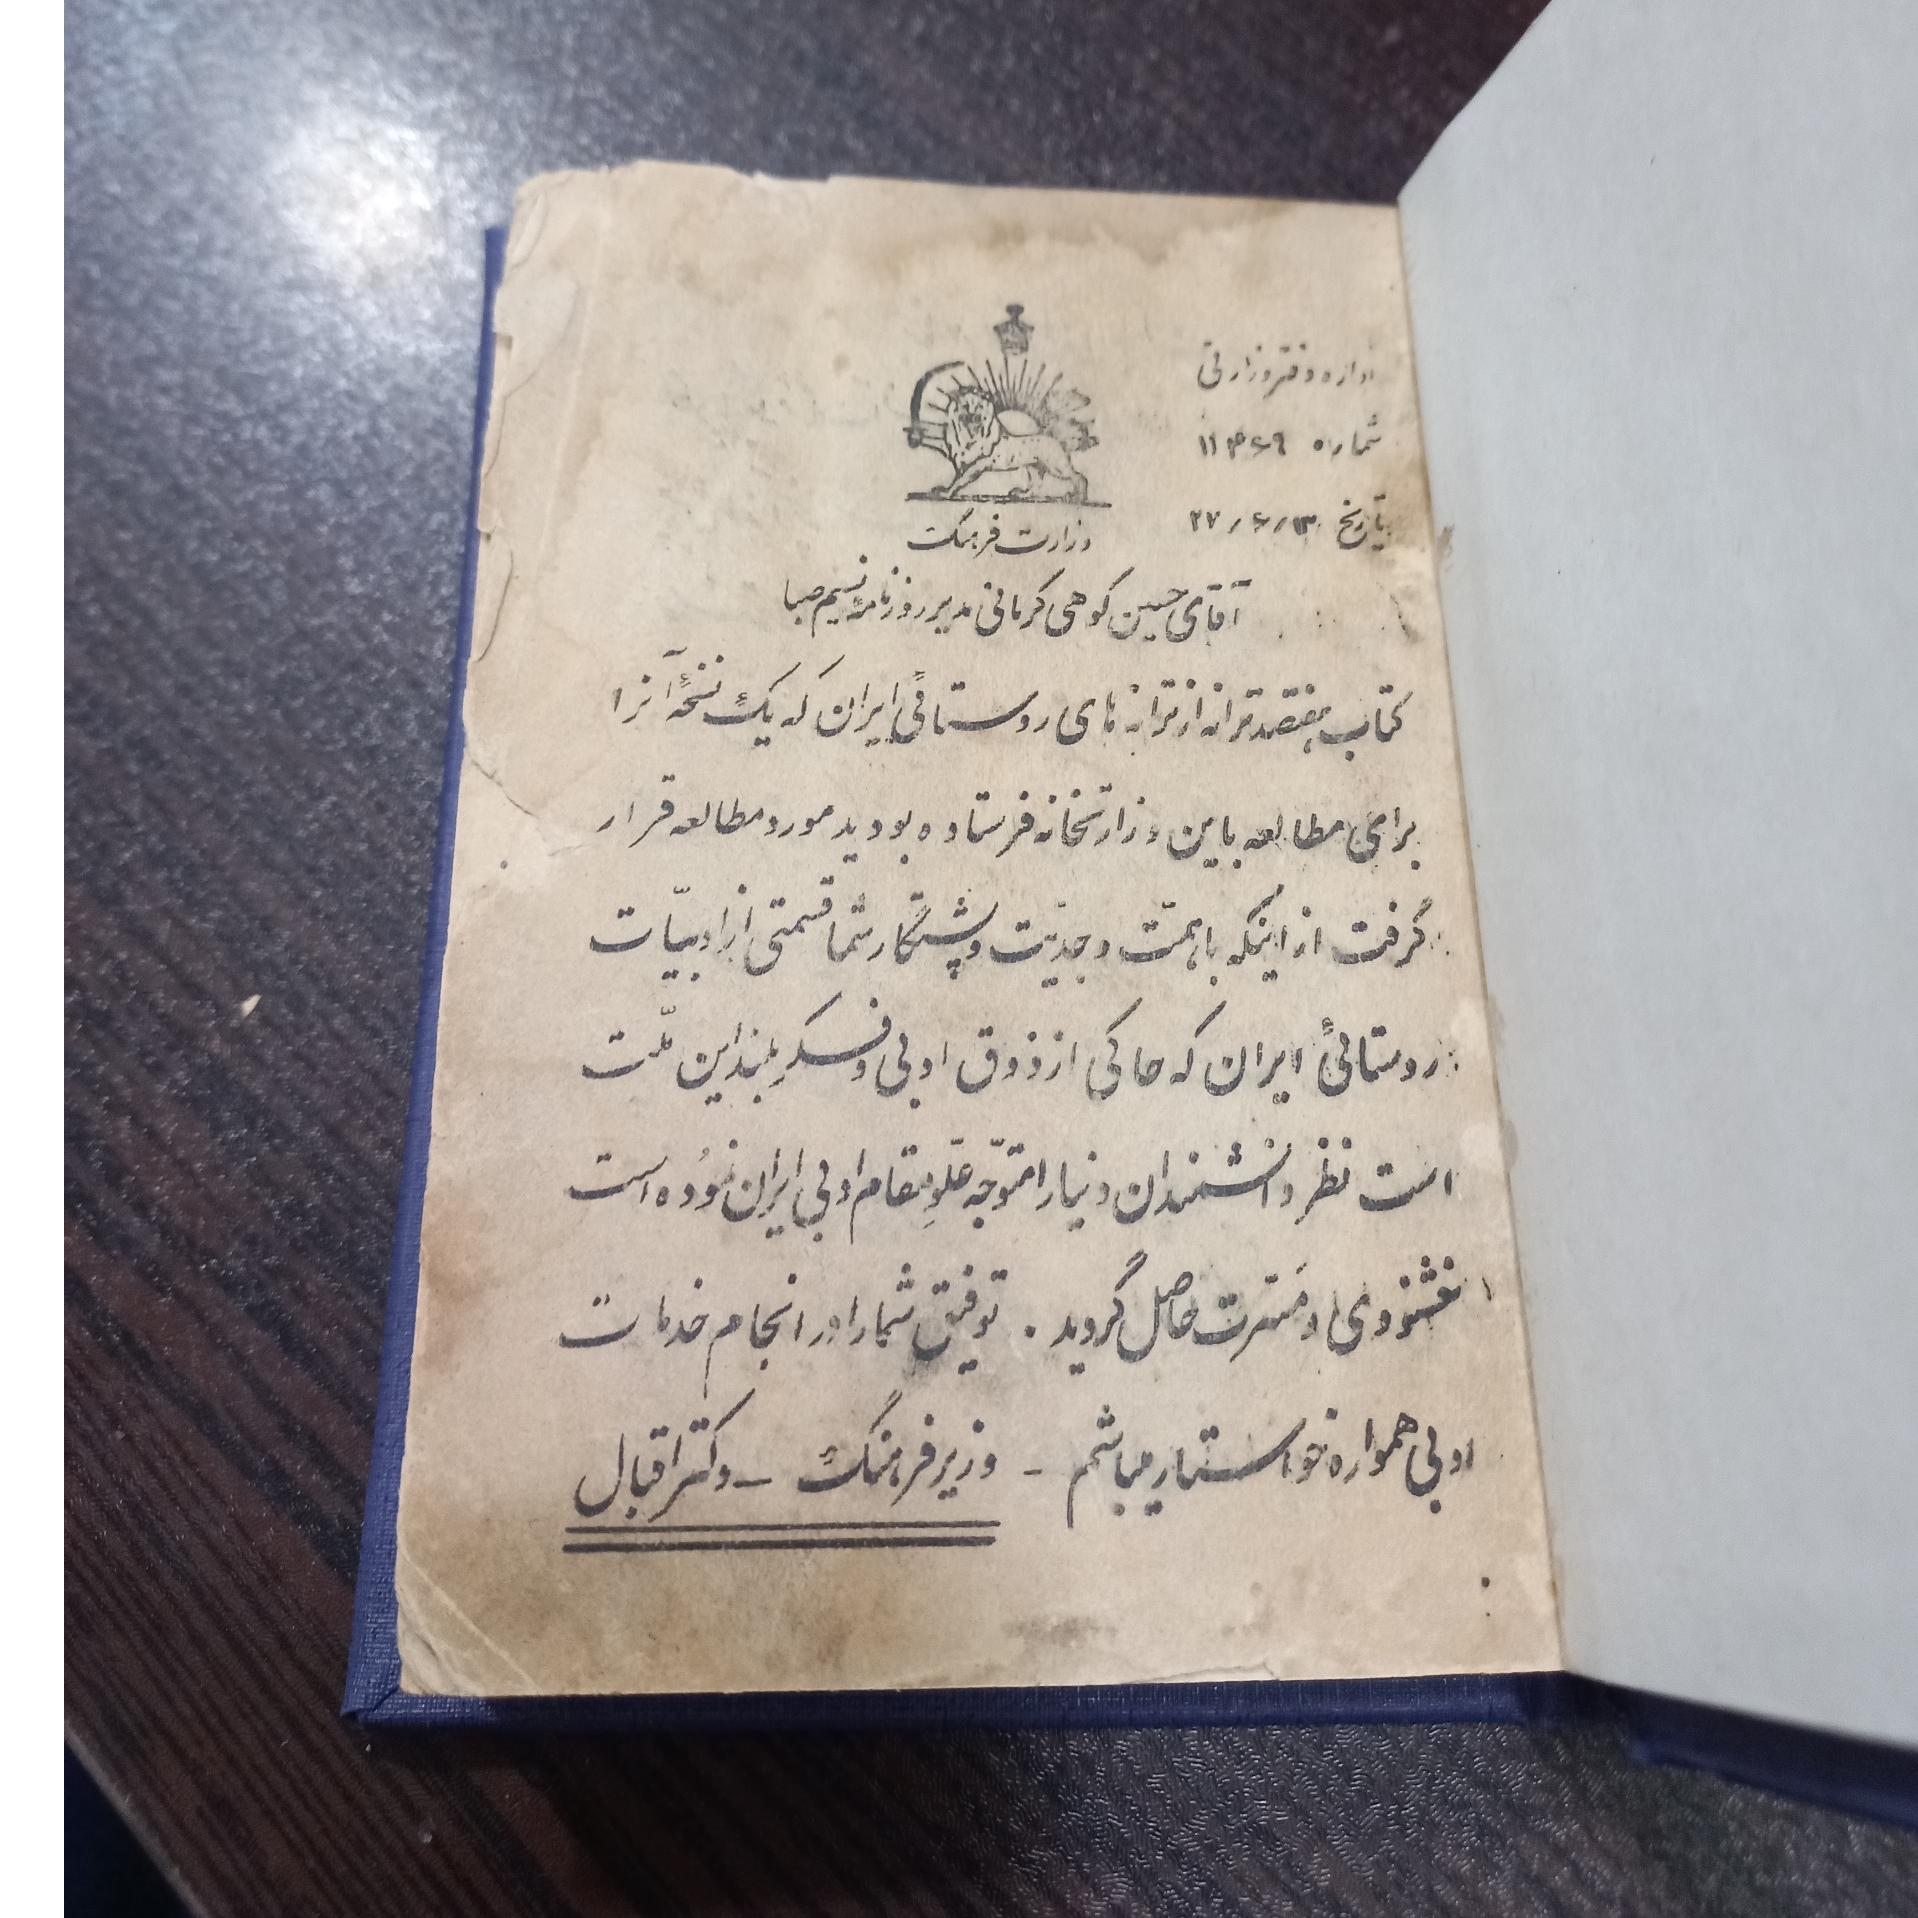 اداره دفتر وزارتی
شماره ۱۱۳۶۶
تاریخ ۲۷/۶/۱۳
وزارت فرهنگ
آقای حسین کوهی کرمانی مدیر روزنامهٔ نسیم صبا
کتاب هفتصد ترانه از ترانه های روستائی ایران که یک نسخهٔ آنرا
برای مطالعه باین وزارتخانه فرستاده بودید مورد مطالعه قرار
گرفت از اینکه با همّت و جدیّت و پشتکار شما قسمتی از ادبیّات
روستائی ایران که حاکی از ذوق ادبی و فکرِ بلند این ملّت
است نظر دانشمندان دنیا را متوّجه علّوِ مقام ادبی ایران نمُوده است
خشنودی و مَسّرت حاصل گردید . توفیق شما را در انجام خدمات
ادبی همواره خواستار میباشم - وزیر فرهنگ - دکتر اقبال